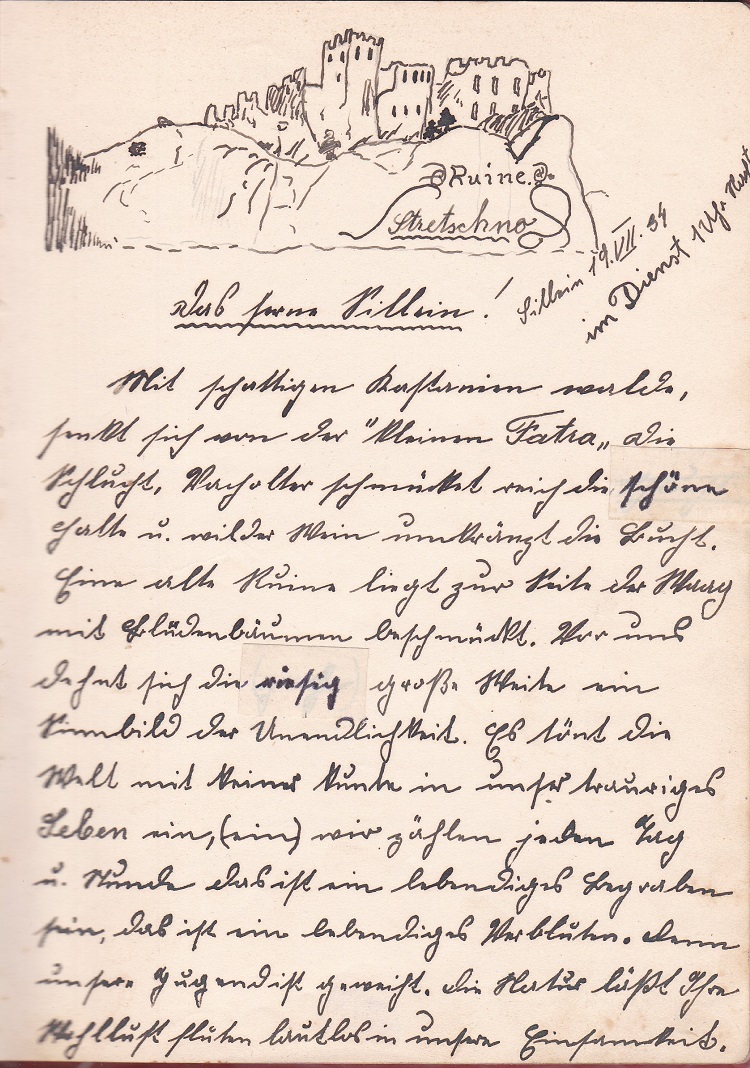 Ruine.
Stretschno
Sillein 19.VII.34
im Dienst 1 Uhr
Das ferne Sillein!
Mit schattigen Kastanien walde,
senkt sich von der "kleinen Fatra" die
Schlucht, Wacholter schmücket reich die schöne
Halte u. wilder Wein umkränzt die Bucht.
Eine alte Ruine liegt zur Seite der Waag
mit Blüdenbäumen beschmückt. Vor uns
dehnt sich die riesig große Weite ein
Sinnbild der Unendlichkeit. Es tönt die
Welt mit keiner Kunte in unser trauriges
Leben ein, (ein) wir zählen jeden Tag
u. Stunde das ist ein lebendiges Begraben
sein, das ist ein lebendiges Verbluten. Denn
unsere Jugend ist geweiht. die Natur läßt Ihre
fluten lautlos in unsere Einsamkeit.